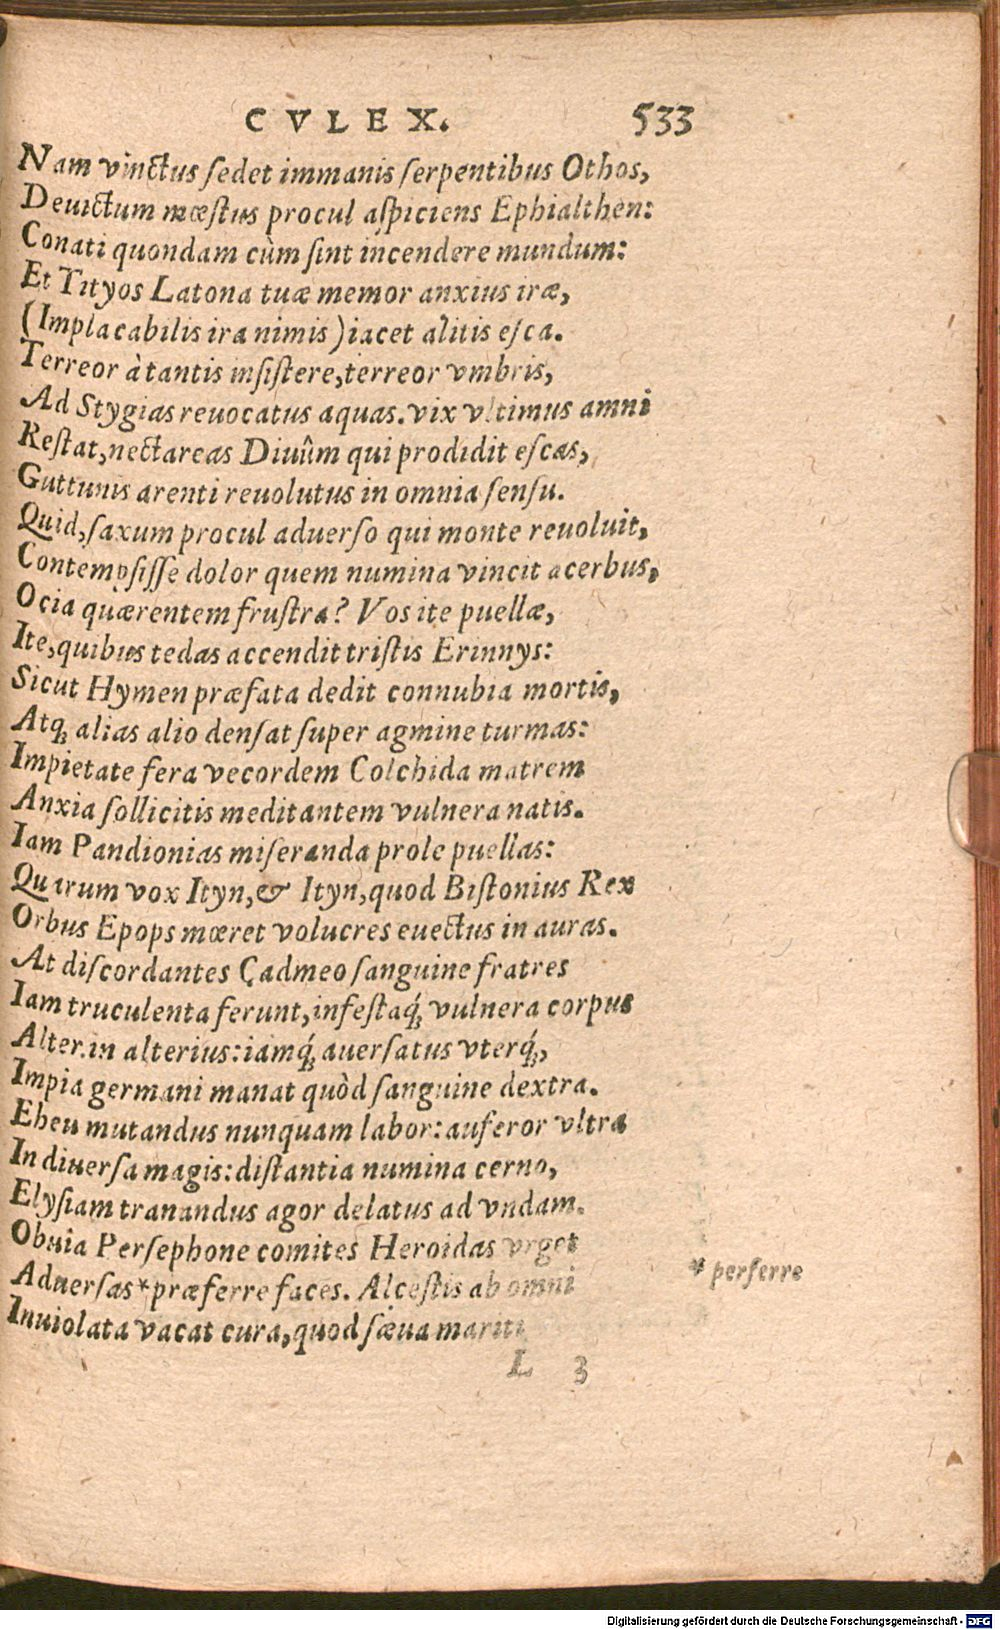 CVLEX. 533
Nam vinctus ſedet immanis ſerpentibus Othos,
Deuictum mœſtus procul aſpiciens Ephialthen:
Conati quondam cùm ſint incendere mundum:
Et Tityos Latona tuæ memor anxius iræ,
(Implacabilis ira nimis) iacet alitis eſca.
Terreor à tantis inſiſtere, terreor vmbris,
Ad Stygias reuocatus aquas. vix vltimus amni
Reſtat, nectareas Diuûm qui prodidit eſcas,
Gutturis arenti reuolutus in omnia ſenſu.
Quid, ſaxum procul aduerſo qui monte reuoluit,
Contempſiſſe dolor quem numina vincit acerbus,
Ocia quærentem fruſtra? Vos ite puellæ,
Ite, quibus tedas accendit triſtis Erinnys:
Sicut Hymen præfata dedit connubia mortis,
Atq; alias alio denſat ſuper agmine turmas:
Impietate fera vecordem Colchida matrem
Anxia ſollicitis meditantem vulnera natis.
Iam Pandionias miſeranda prole puellas:
Quarum vox Ityn, & Ityn, quod Biſtonius Rex
Orbus Epops mœret volucres euectus in auras.
At diſcordantes Cadmeo ſanguine fratres
Iam truculenta ferunt, infeſtaq́; vulnera corpus
Alter.in alterius: iamq́; auerſatus vterq́;,
Impia germani manat quòd ſanguine dextra.
Eheu mutandus nunquam labor: auferor vltra
In diuerſa magis: diſtantia numina cerno,
Elyſiam tranandus agor delatus ad vndam.
Obuia Perſephone comites Heroidas vrget
Aduerſas * præferre faces. Alceſtis ab omni
* perferre
Inuiolata vacat cura, quod ſæua mariti
L 3
Digitalisierung gefördert durch die Deutsche Forschungsgemeinschaft - DFG